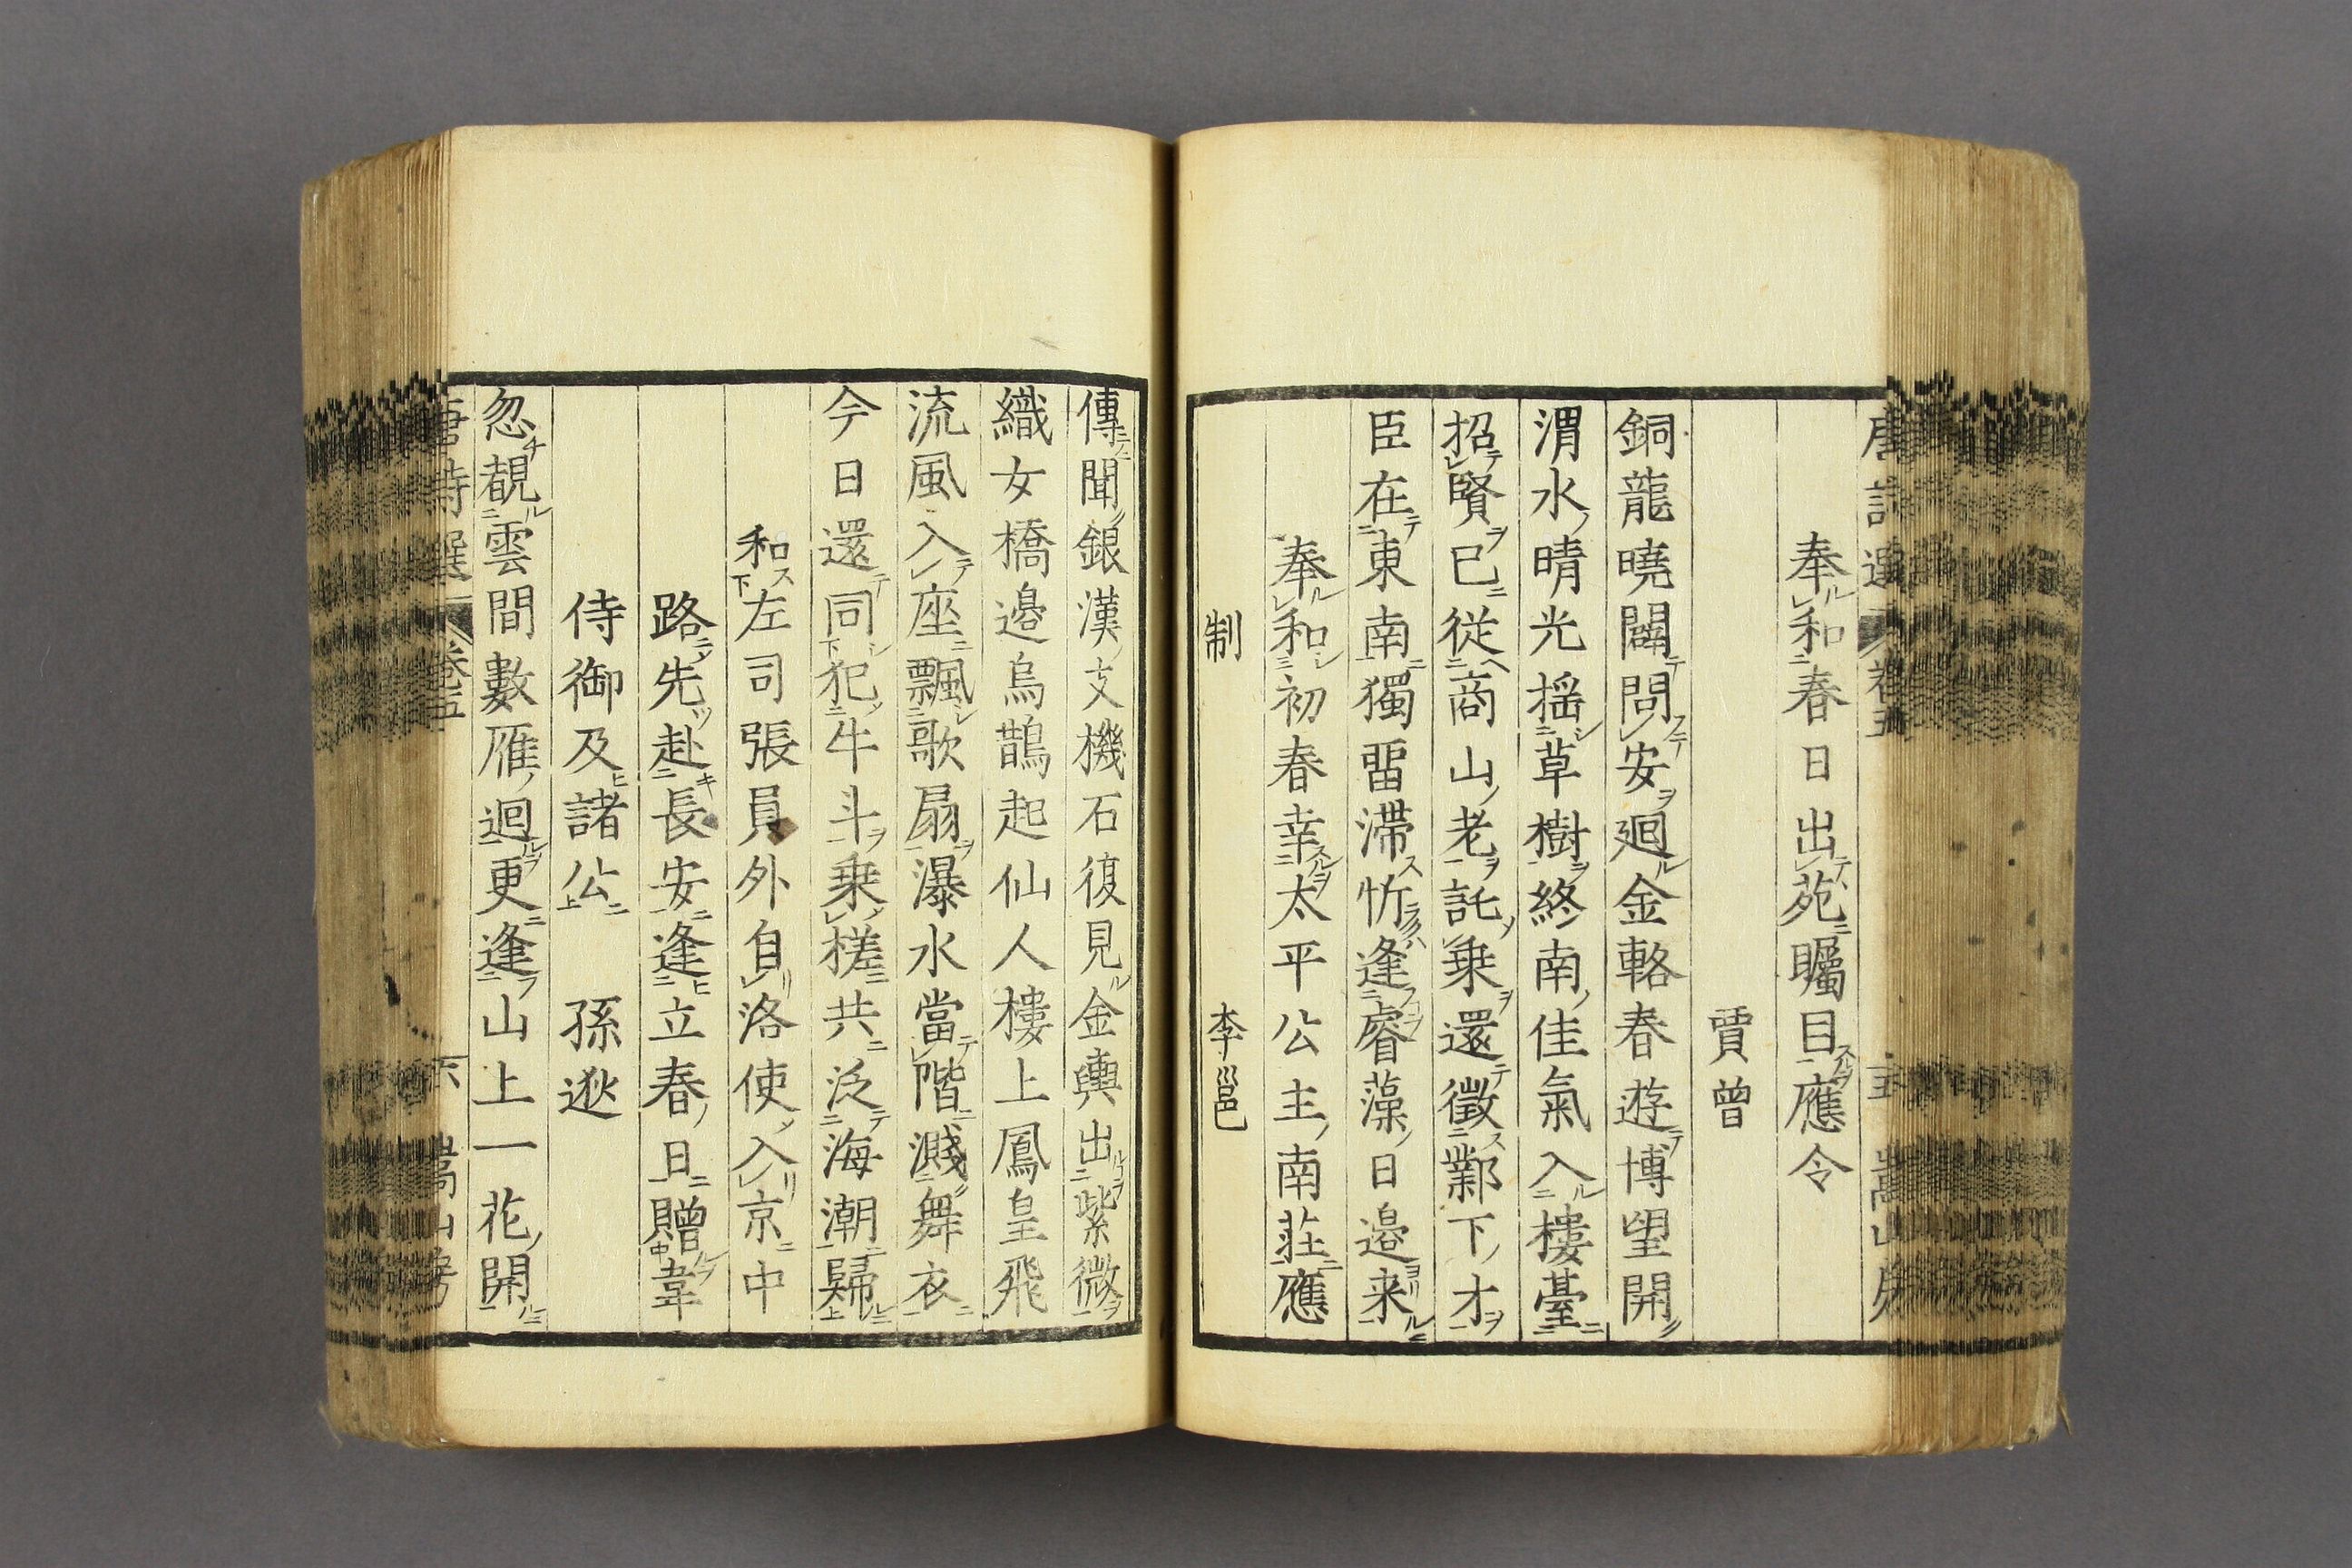 唐詩選 卷五 嵩山房
奉和春日出苑矚目應令
賈曾
銅龍曉闢問安廻金輅春遊博望開
渭水晴光搖草樹終南佳氣入樓臺
招賢已從商山老託乘還徵鄴下才
臣在東南獨畱滯忻逢睿藻日邉来
奉和初春幸太平公主南莊應
制 李邕
傳聞銀漢支機石復見金輿出紫微
織女橋邉烏鵲起仙人樓上鳳皇飛
流風入座飄歌扇瀑水當階濺舞衣
今日還同犯牛斗乗槎共泛海潮歸
和左司張員外自洛使入京中
路先赴長安逢立春日贈韋
侍御及諸公 孫逖
忽覩雲間數雁迴更逢山上一花開
唐詩選 卷五 六 嵩山房